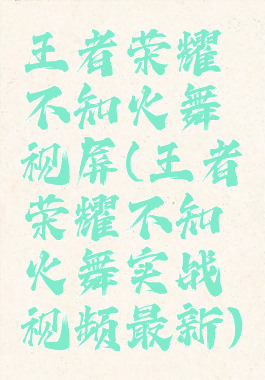 王者荣耀
不知火舞
视屏(王者
荣耀不知
火舞实战
视频最新)